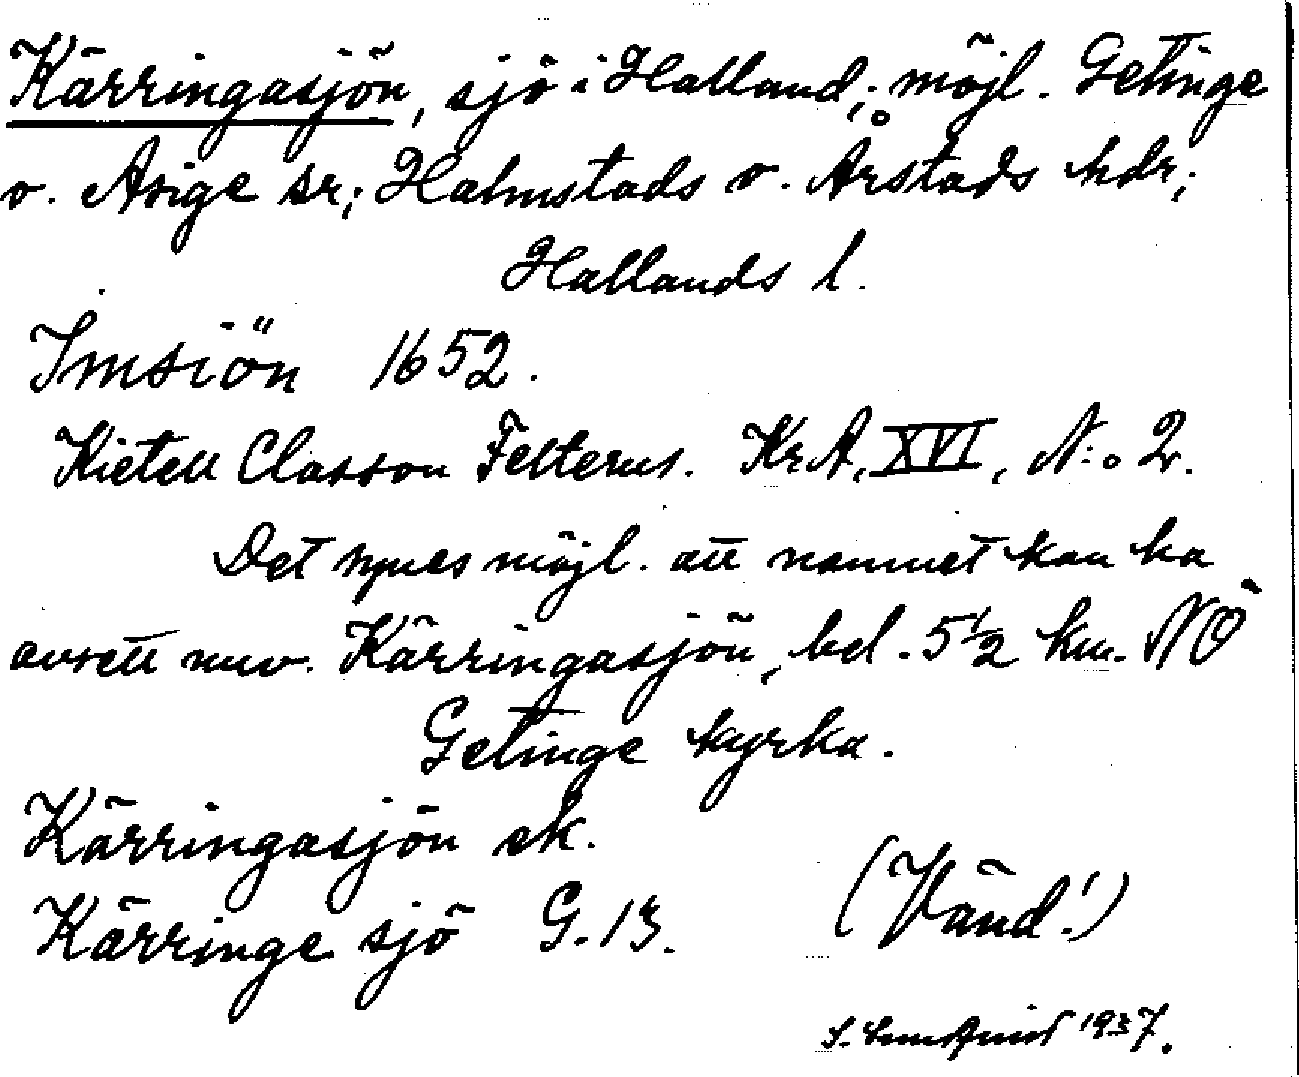 Kärringasjön, sjö i Halland; möjl. Getinge
o. Asige sr; Halmstads o. Årstads hdr;
Hallands l.
Imsiön 1652.
Kietell Classon Felterus. KrA, XVI, N:o 2.
Det synes möjl. att namnet kan ha
avsett nuv. Kärringasjön, bel. 5 1/2 km. NÖ
Getinge kyrka.
Kärringasjön ek.
Kärringe sjö G. 13.
(Vänd!)
1937.